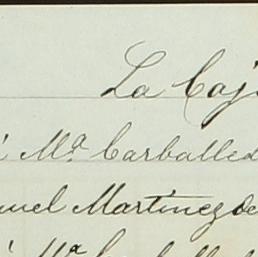 La Caj
i Mª Carballed
uel Martinez de
i Mª Carballed